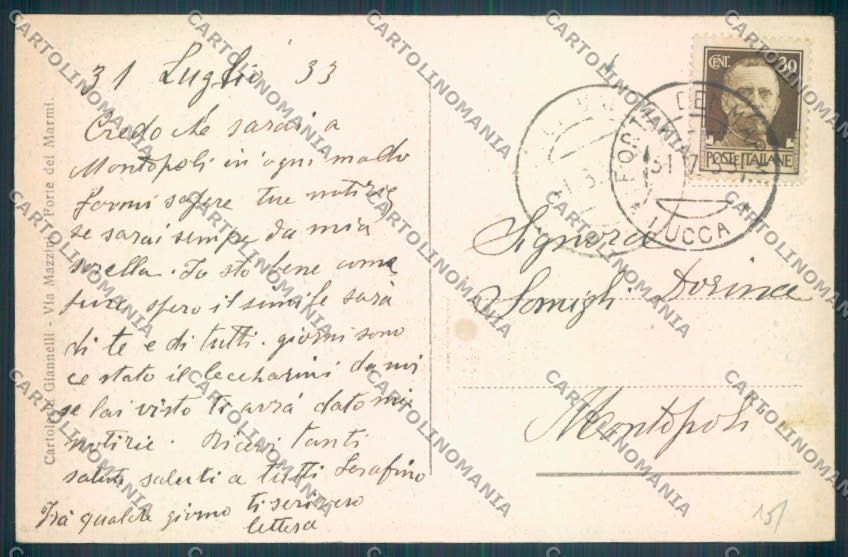 31 Luglio 33
Credo che sarai a
Montopoli in ogni modo
fammi sapere tue notizie
se sarai sempre da mia
sorella. Io sto bene come
pure spero il simile sarà
di te e di tutti. giorni sono
ce stato il Ceccharini da mi
se lai visto ti avrà dato mie
notizie. Ricevi tanti
saluti saluti a tutti Serafino
Fra qualche giorno ti scrivero
lettera
Cartoleria Giannelli - Via Mazzini - Forte dei Marmi.
CENT. 30
POSTE ITALIANE
FORTE DEI MARMI
31 7 33
LUCCA
Signora
Somigli Dorina
Montopoli
15/
CARTOLINOMANIA